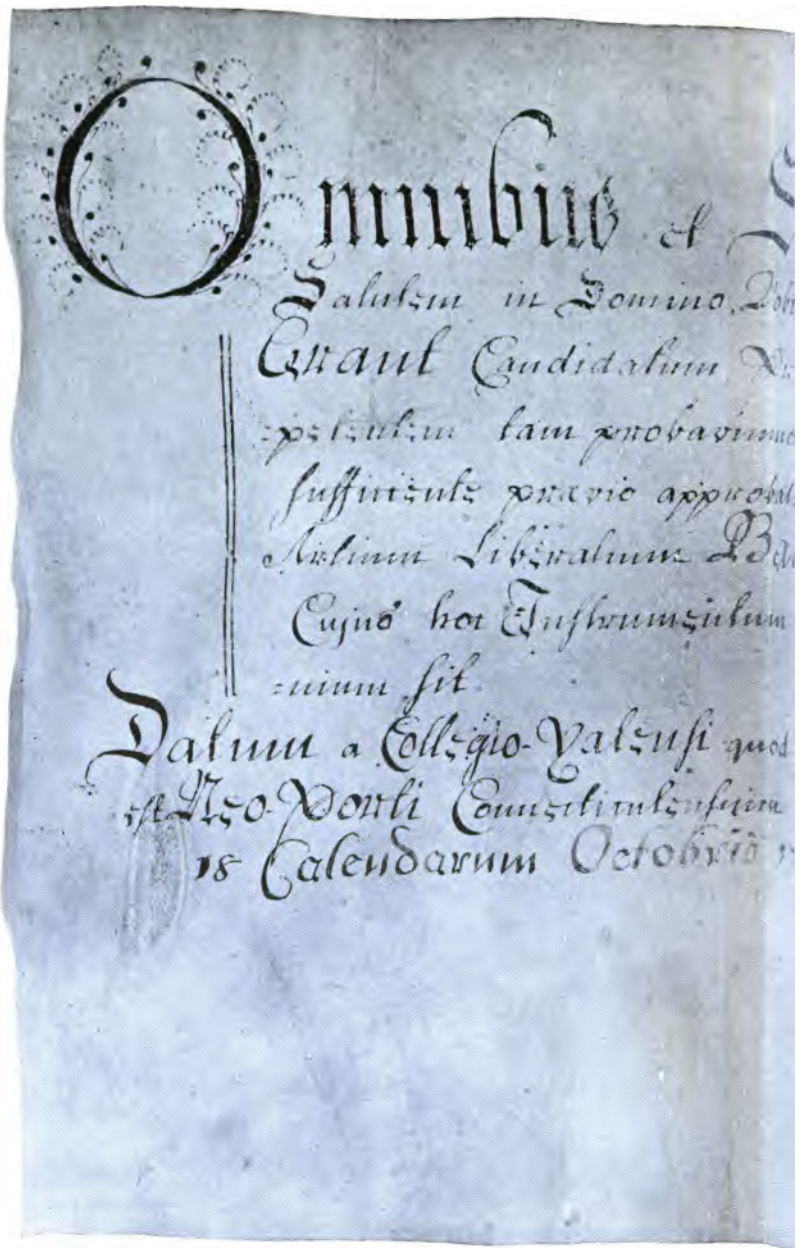 Omnibus et
Salutem in Domino. Vobi
Grant Candidatum Pr
-petentem tam probavimus
sufficiente prævio approbat
Artium Liberalium Ba
Cujus hoc Instrumentum
-nium sit.
Datum a Collegio-Yalensi quod
est Neo-Porti Connecticutensium
18 Calendarum Octobris